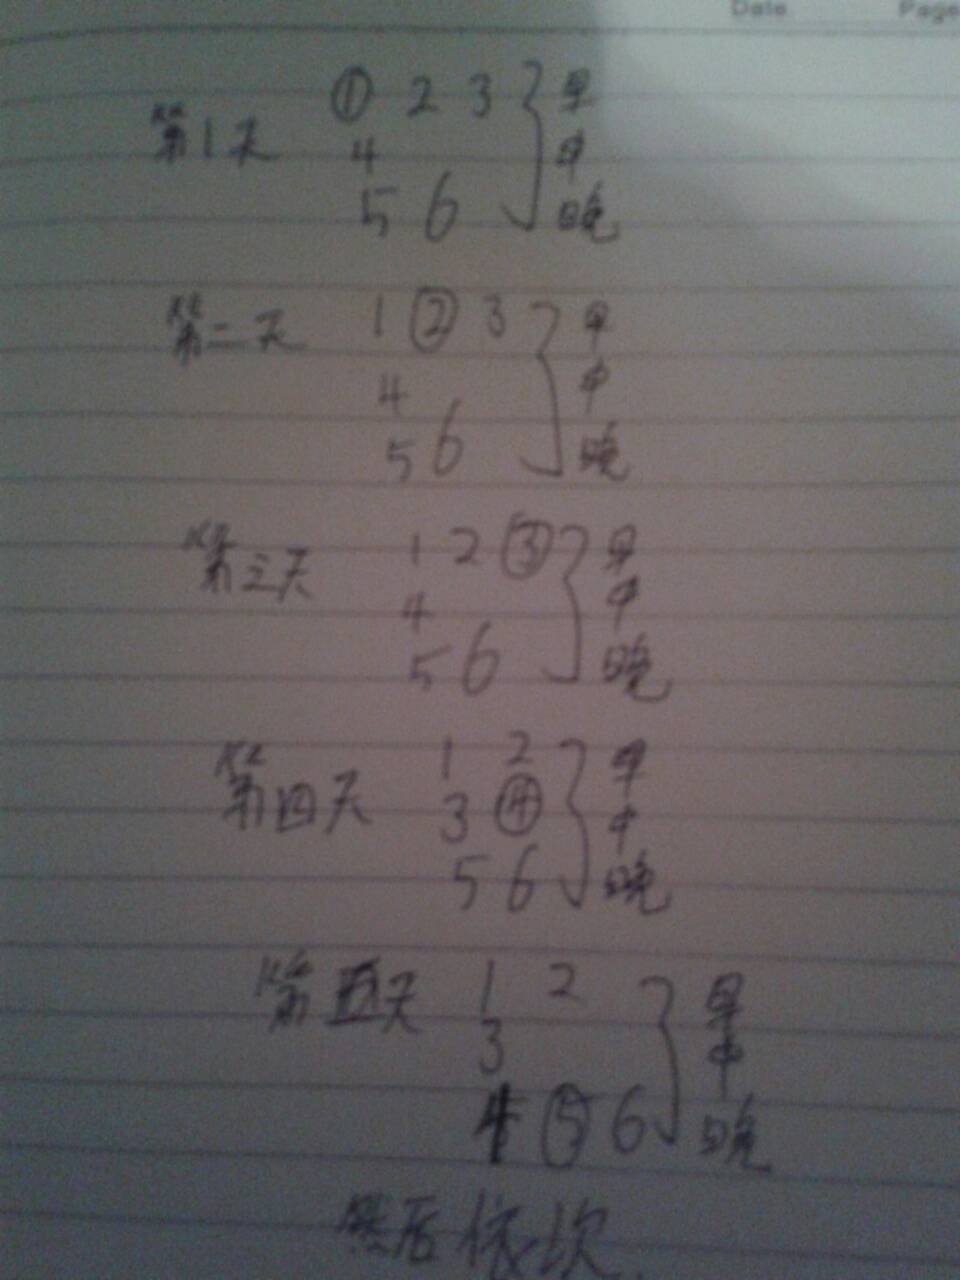 Date. Page
① 2 3 早
第1天 4 中
5 6 晚
第二天 1 ② 3 早
4 中
5 6 晚
第三天 1 2 ③ 早
4 中
5 6 晚
1 2 早
第四天 3 ④ 中
5 6 晚
第五天 1 2 早
3 中
4 ⑤ 6 晚
然后依次